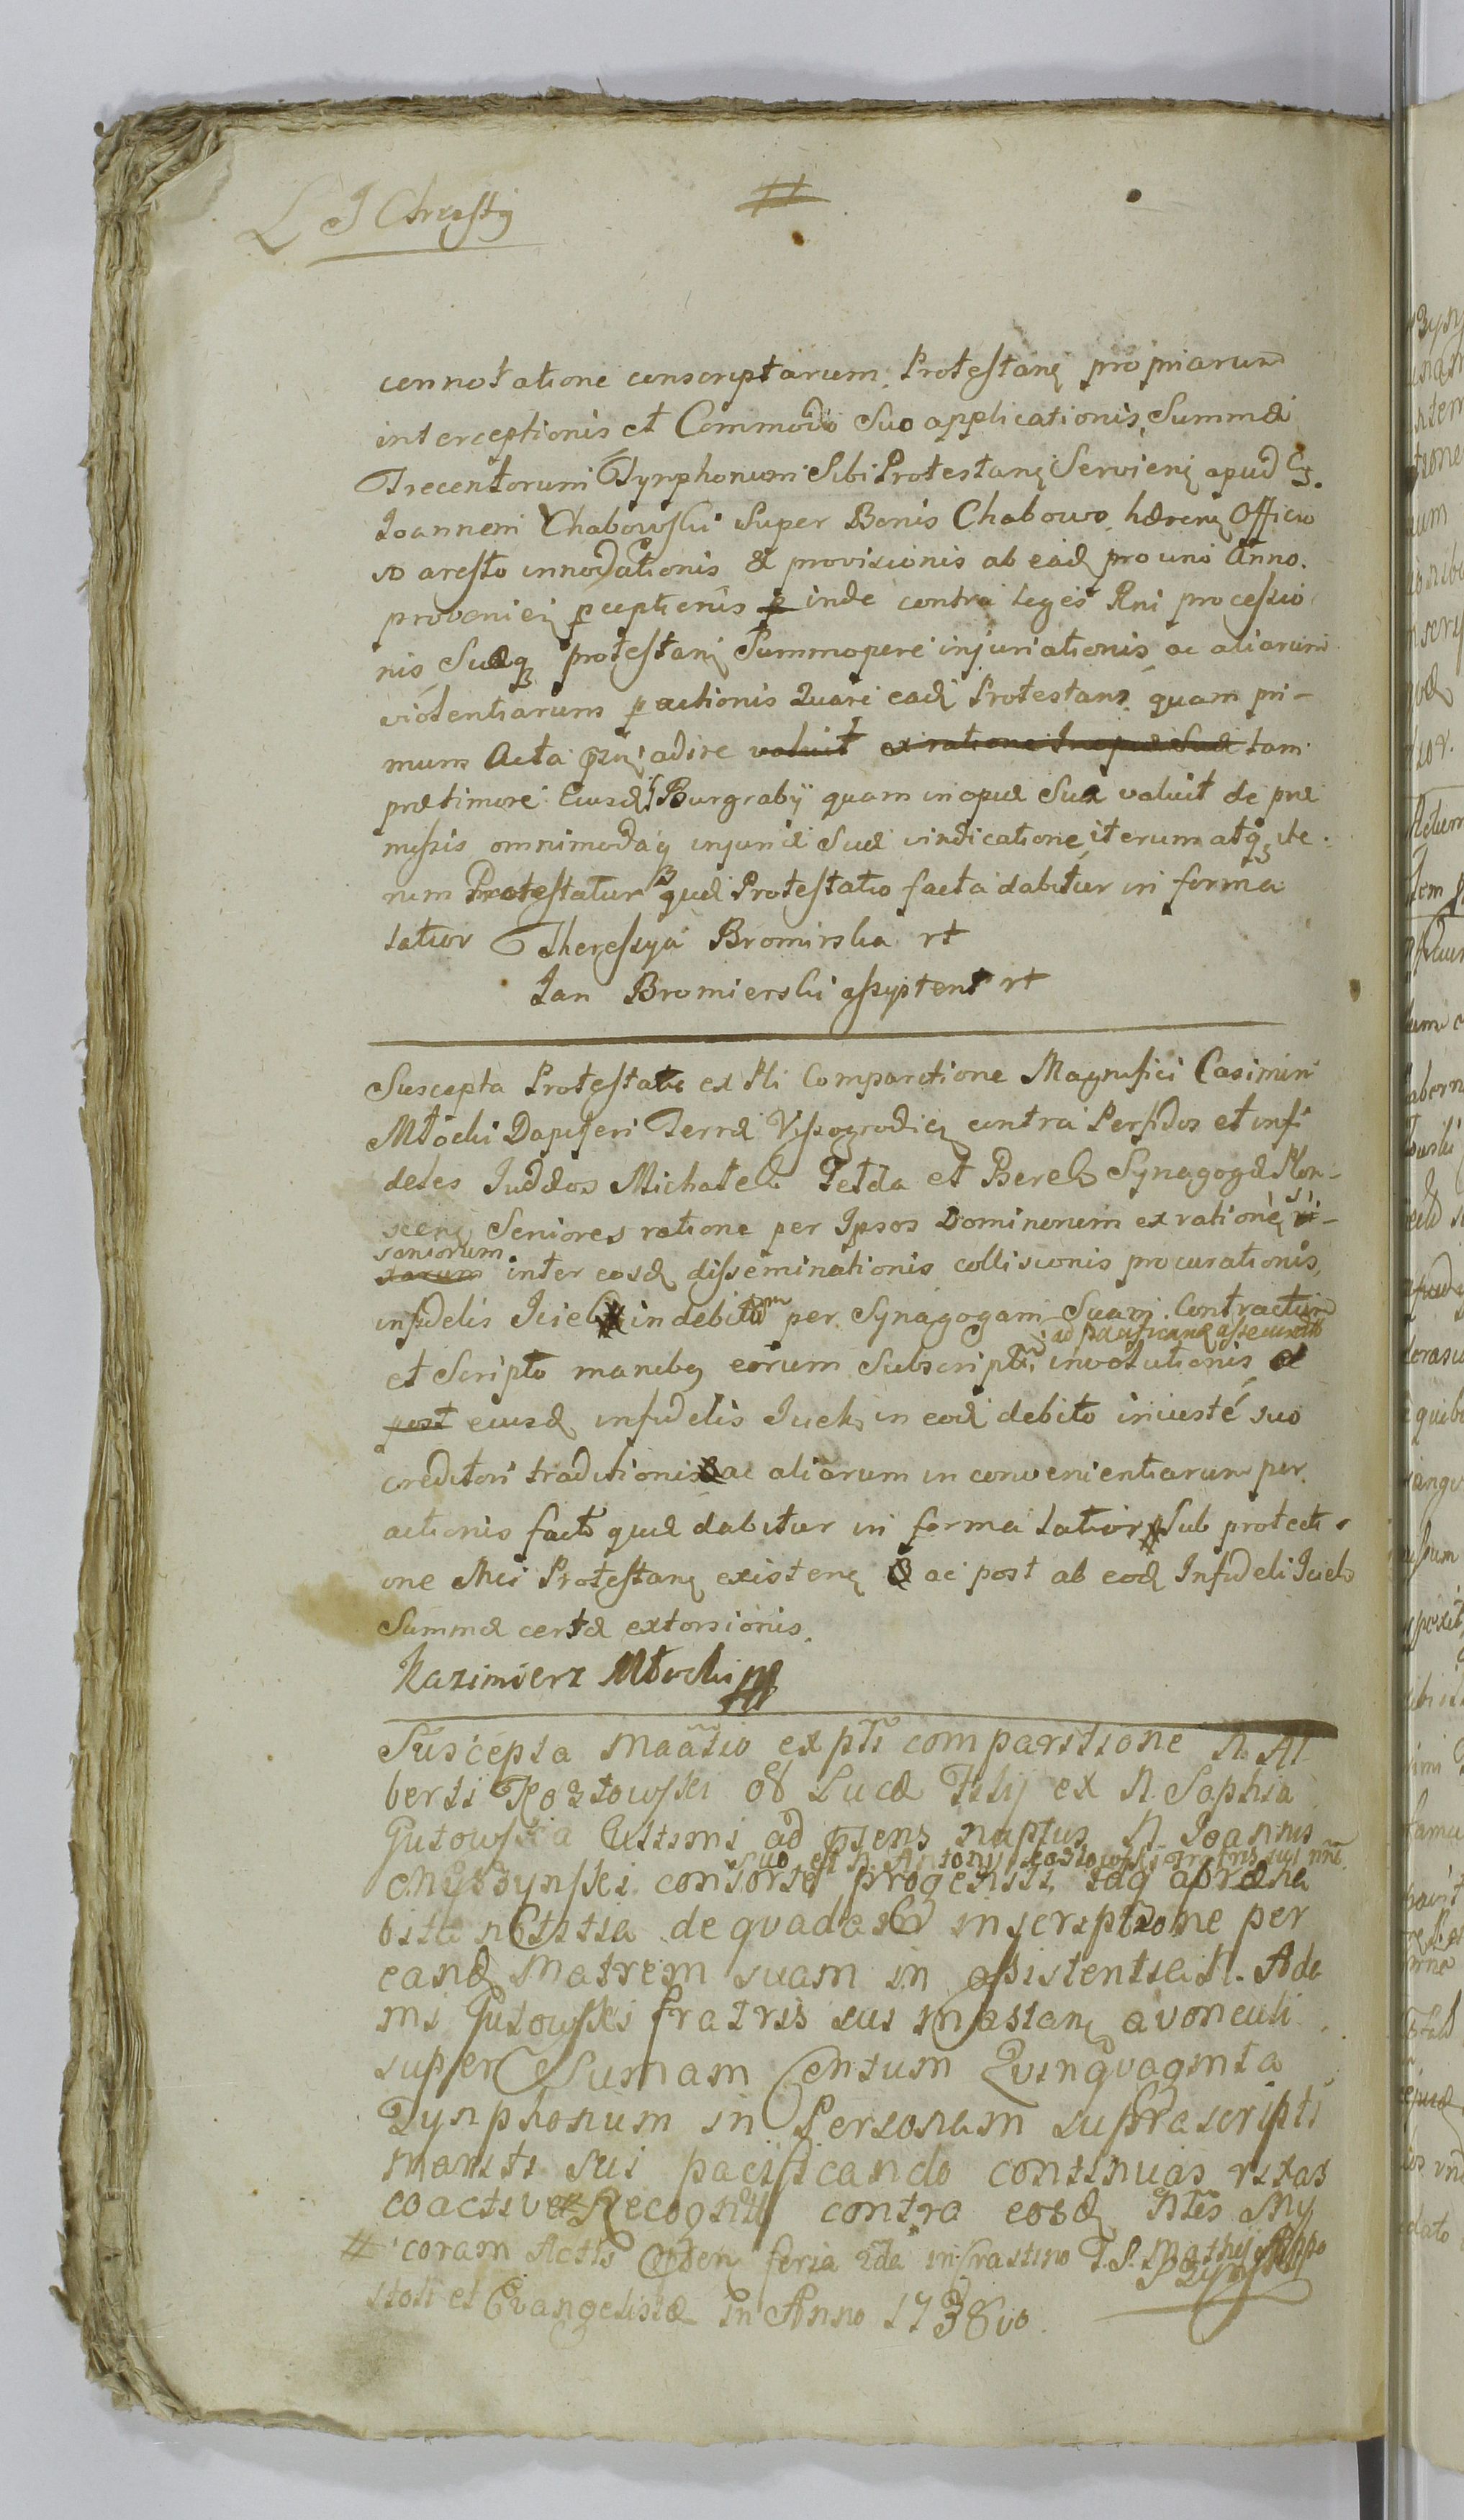 L J Chrissti
connotatione conscriptarum Protestanę propriarum
interceptionis et Commodo Suo applicationis, Summæ
Trecentorum Tynphonum Sibi Protestanę Servienę apud Eg.
Joannem Chabowski Super Bonis Chabowo hærenę Officio
so aresto innodationis & provisionis ab eadę pro uno Anno
provenienę pceptionis inde contra leges Rni processio
nis Suæq protestanę Summopere injuriationis ac aliarum
violentiarum pactionis Quare eadę Protestans quam pri-
mum Acta adire valuit ex ratione Inopiæ Suæ tam
præ timore Eiusdę Burgrabij quam inopiæ Suæ valuit de præ
missis omnimodaq injuriæ Suæ vindicatione iterum atq ite
rum Protestatur quæ Protestatio facta dabitur in forma
latior Theressya Bromirska rt
Jan Bromierski assyptent rt
Suscepta Protestatio ex Pli Comparitione Magnifici Casimiri
Młocki Dapiferi Terræ Vissogrodię contra Perfidos et infi
deles Judæos Michatek Jelda et Berek Synagogæ Plon-
scenę Seniores ratione per Ipsos Dominorum ex ratione
saniorum
sarum inter eosdę disseminationis collisionis procurationis,
infidelis Iciek in debitū per Synagogam Suam Contractum
et Scripto manibq eorum Subscripto involutionis et
post eiusdę infidelis Iciek in eodę debito iniusté suo
creditori traditionis ac aliarum in convenientiarum per
actionis facto quæ dabitur in forma latior # Sub protecti
one Mei Protestanę existenę & ac post ab eodę Infideli Iciek
Summæ certæ extorsionis.
Kazimierz Młocki
Suscepta Maātio ex ptī comparitione N. Al
berti Kozłowski olī Lucæ Filij ex N. Sophia
Gutowska Ultimi ad psens nuptus N. Joannis
suo et N. Antonij Kozłowski Fratris sui nnē
Myszynski consorte progeniti, idq apræha
bita notitia de quadam inscriptione per
eandę Matrem suam in assistentia N. Ada
mi Gutowski fratris sui Mastanę avonculi
super Sumam Centum Quinquaginta
Tynphonum in Personam suprascripti
mariti sui pacificando continuas rixas
coactive Recognito contra eosdę Nles My
szynski
# coram Actis feria 2da in crastino F. S. Mathij Appo
stoli et Evangelistæ in Anno 1738vo.